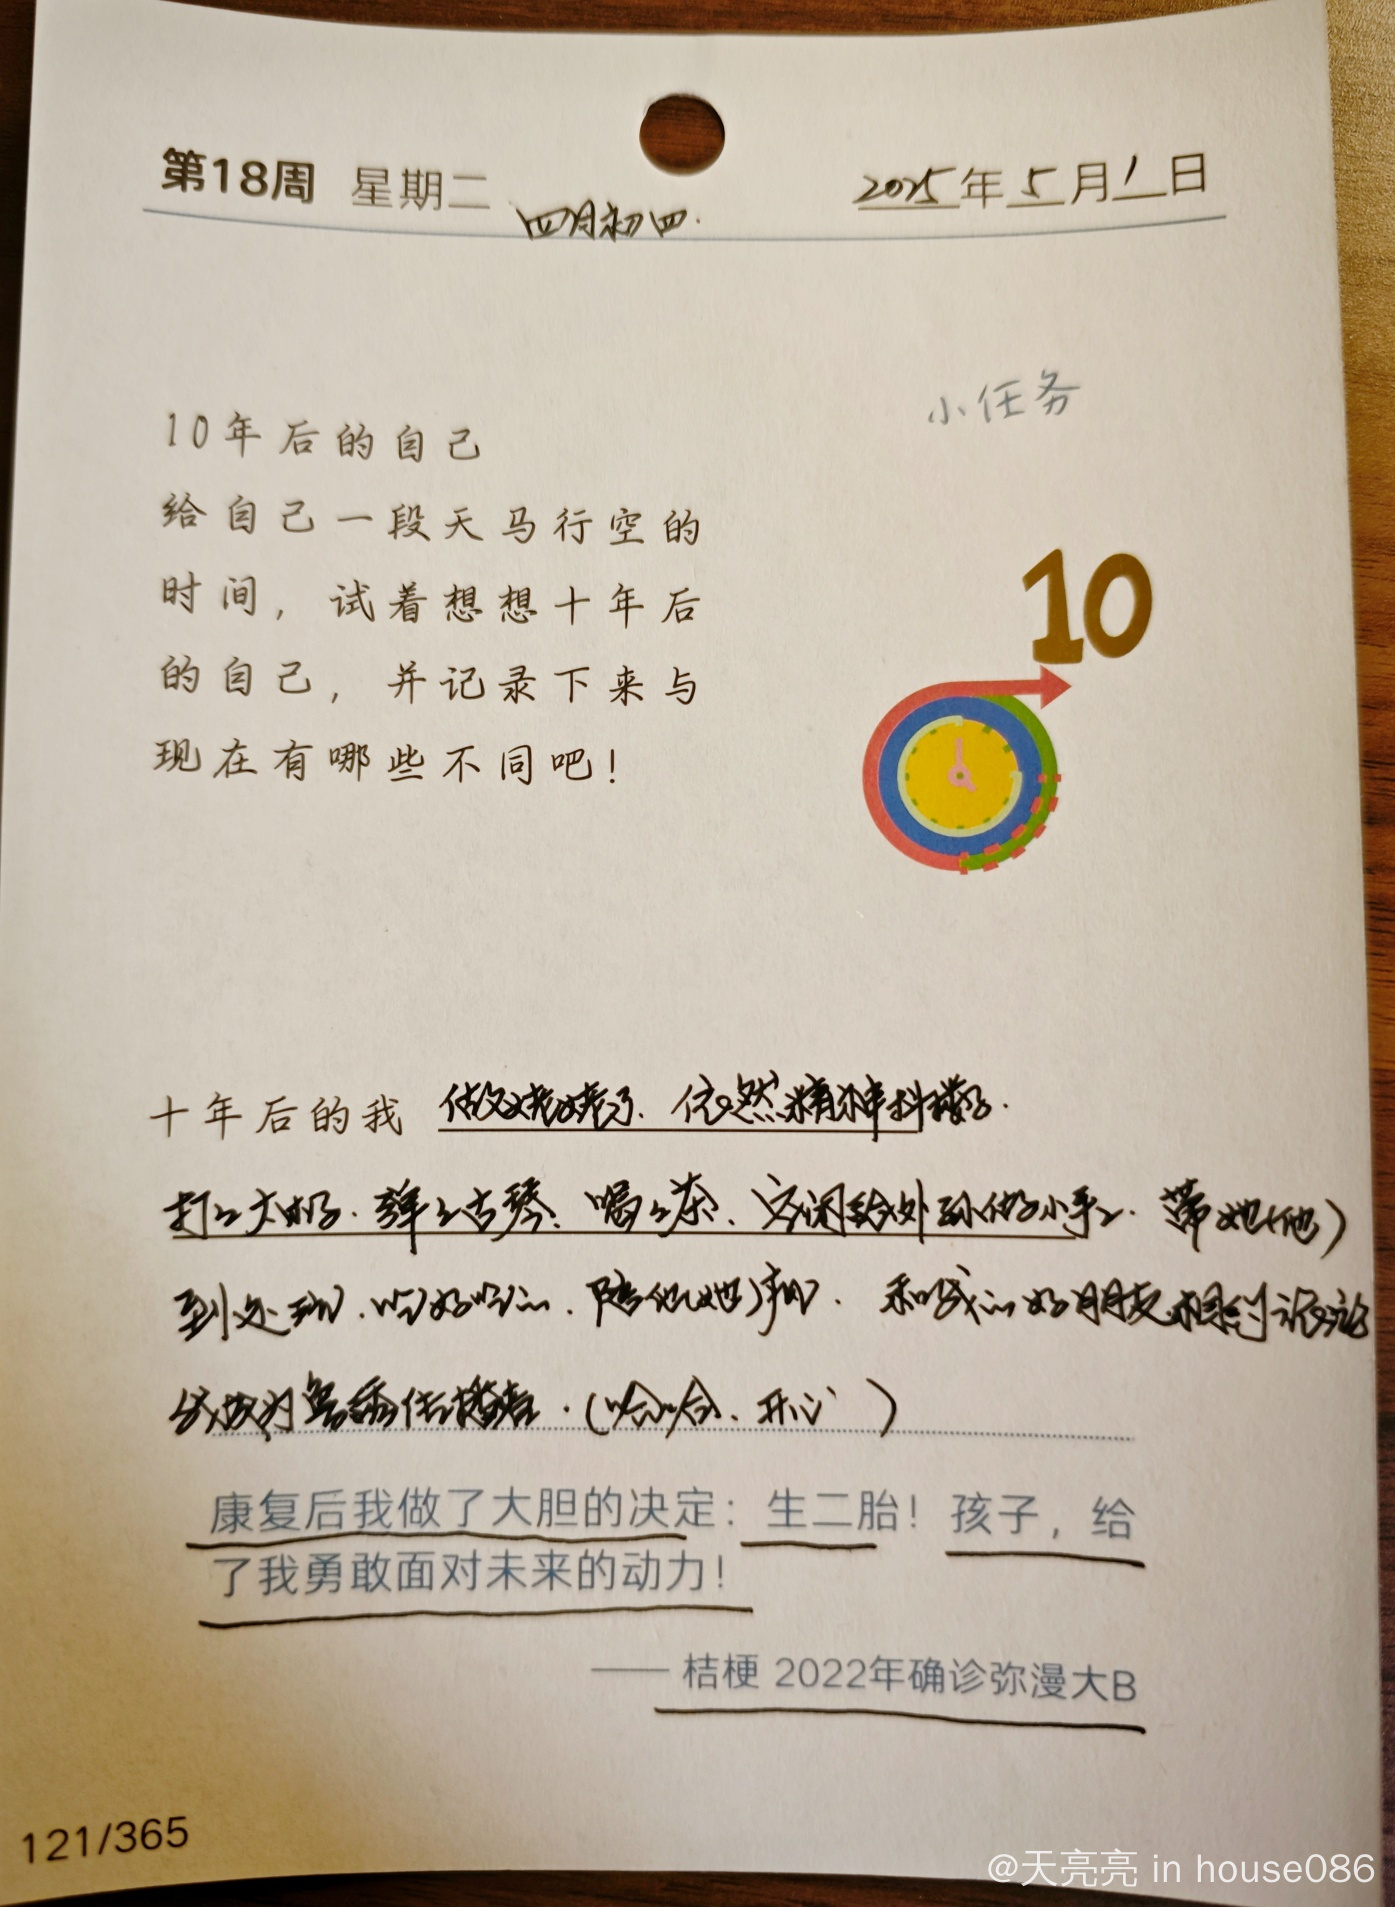 第18周 星期二 四月初四. 2025年5月1日
小任务
10年后的自己
给自己一段天马行空的
时间，试着想想十年后
的自己，并记录下来与
现在有哪些不同吧！
10
十年后的我 做姥姥了. 依然精神抖擞.
打打太极. 弹弹古琴. 喝喝茶. 空闲给外孙做小手工. 带她(他)
到处玩. 吃好吃的. 陪他(她) 和我的好朋友相约
成为 传播者.(哈哈、开心)
康复后我做了大胆的决定：生二胎！孩子，给
了我勇敢面对未来的动力！
—— 桔梗 2022年确诊弥漫大B
121/365
@天亮亮 in house086